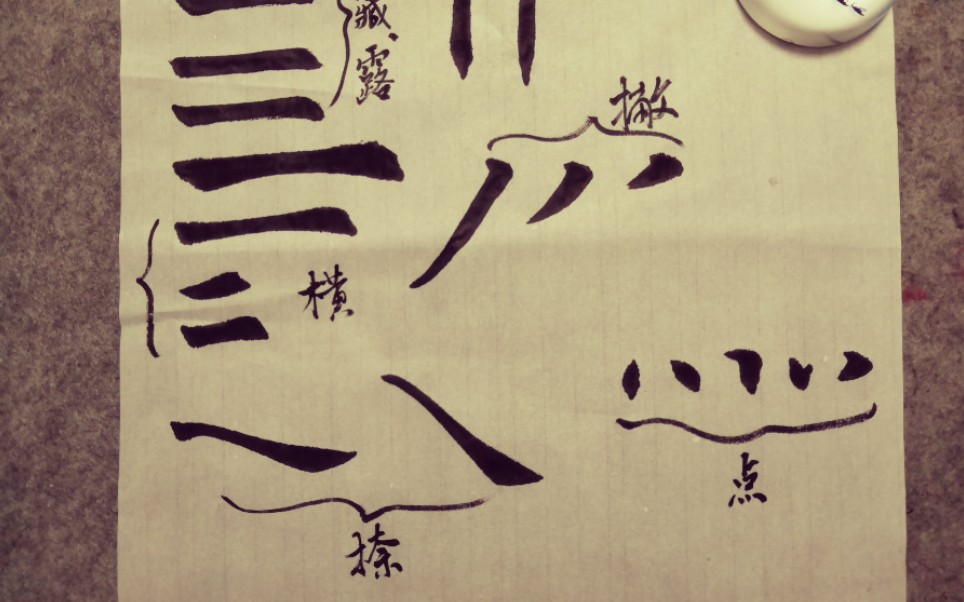 藏、露
撇
横
点
捺